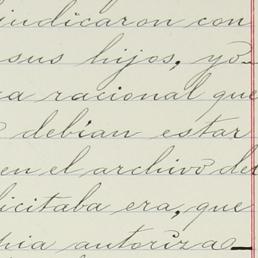 indicaron con
sus hijos, yo
a racional que
debian estar
en el archivo del
licitaba era, que
hia autoriza-